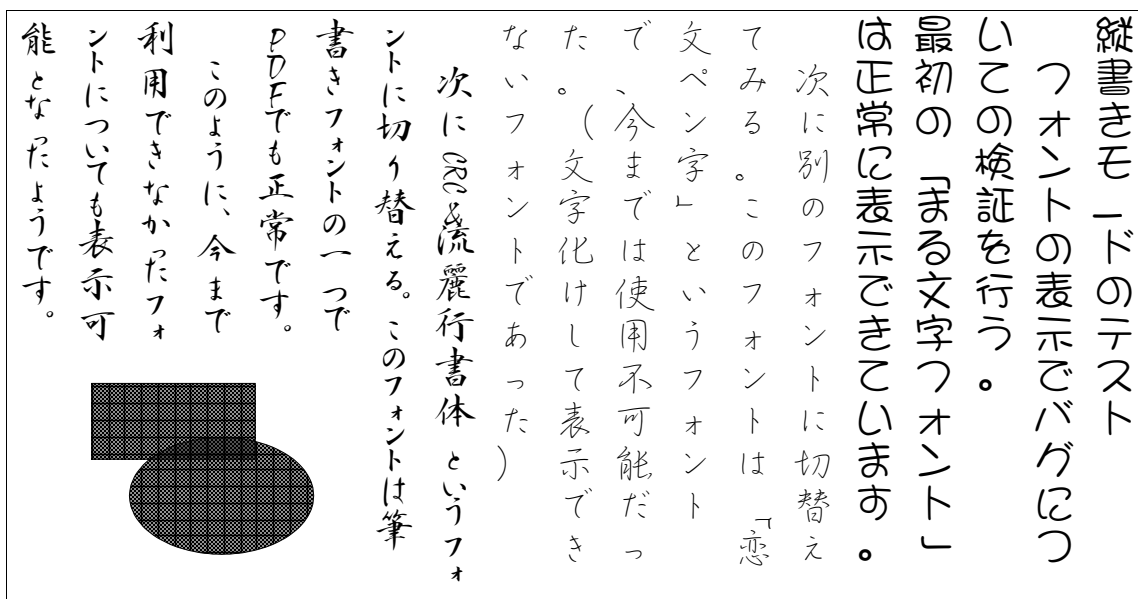 縦書きモードのテスト
フォントの表示でバグにつ
いての検証を行う。
最初の「まる文字フォント」
は正常に表示できています。
次に別のフォントに切替え
てみる。このフォントは「恋
文ペン字」というフォント
で、今までは使用不可能だっ
た。(文字化けして表示でき
ないフォントであった)
次にCRC&流麗行書体というフォ
ントに切り替える。このフォントは筆
書きフォントの一つで
PDFでも正常です。
このように、今まで
利用できなかったフォ
ントについても表示可
能となったようです。